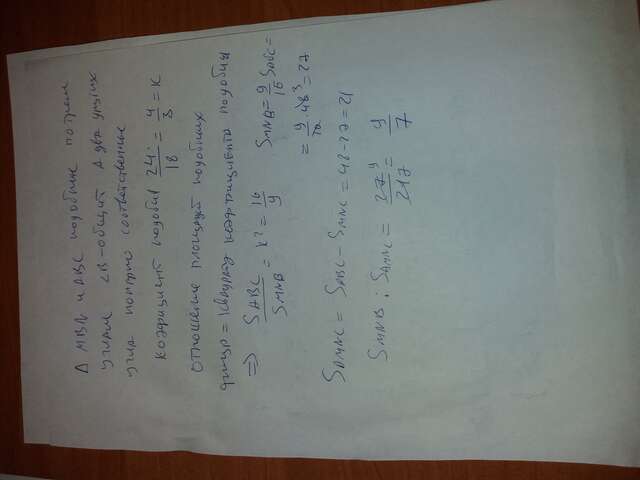 Δ MBN и ABC подобные по трем
углам ∠B - общий а два других
угла попарно соответственные
коэфициент подобия 24/18 = 4/3 = k
отношение площадей подобных
фигур = квадрату коэффициента подобия
⇒ S ABC / S MNB = k² = 16/9 S MNB = 9/16 S ABC =
= 9/16 · 48 3 = 27
S AMNC = S ABC - S MNC = 48 - 27 = 21
S MNB : S AMNC = 27 9 / 21 7 = 9/7